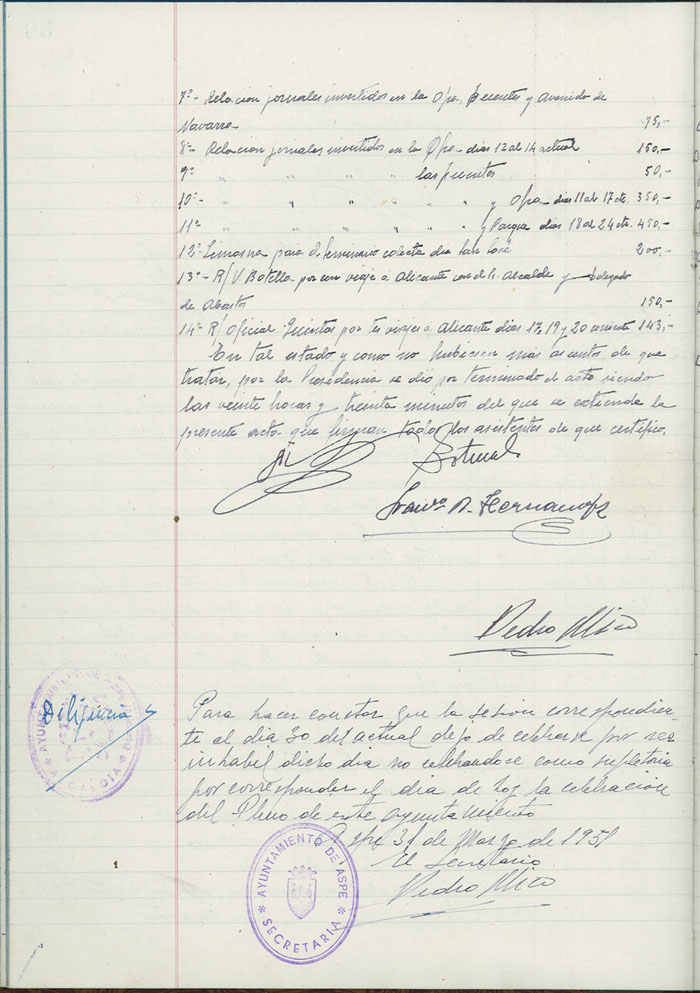 7º- Relacion jornales invertidos en la Opa, Puentes y Avenida de
Navarra 75,-
8º- Relacion jornales invertidos en la Opa- dias 12 al 14 actual 150,-
9º " " " las puentes 50,-
10º- " " " " " y Opa- dias 11 al 17 cte. 350,-
11º " " " " " " y Parque dias 18 al 24 cte. 450,-
12º Limosna para el Seminario colecta dia San José 200,-
13º- R/ V. Botella por un viaje a Alicante con el Sr. Alcalde y Delegado
de Abastos 150,-
14º R/ Oficial por tres viajes a Alicante dias 17, 19 y 20 corriente 143,-
En tal estado y como no hubiesen más asuntos de que
tratar, por la Presidencia se dio por terminado el acto siendo
las veinte horas y treinta minutos del que se extiende la
presente acta que firman todos los asistentes de que certifico.
Botella
Franco A. Hernandez
Pedro Mico
Diligencia
AYUNTAMIENTO DE ASPE
ALCALDIA
Para hacer constar que la sesion correspondien-
te al dia 30 del actual dejo de celebrarse por ser
inhabil dicho dia no celebrandose como supletoria
por corresponder el dia de hoy la celebracion
del Pleno de este Ayuntamiento
Aspe 31 de Marzo de 1951
El Secretario
Pedro Mico
* AYUNTAMIENTO DE ASPE *
SECRETARIA